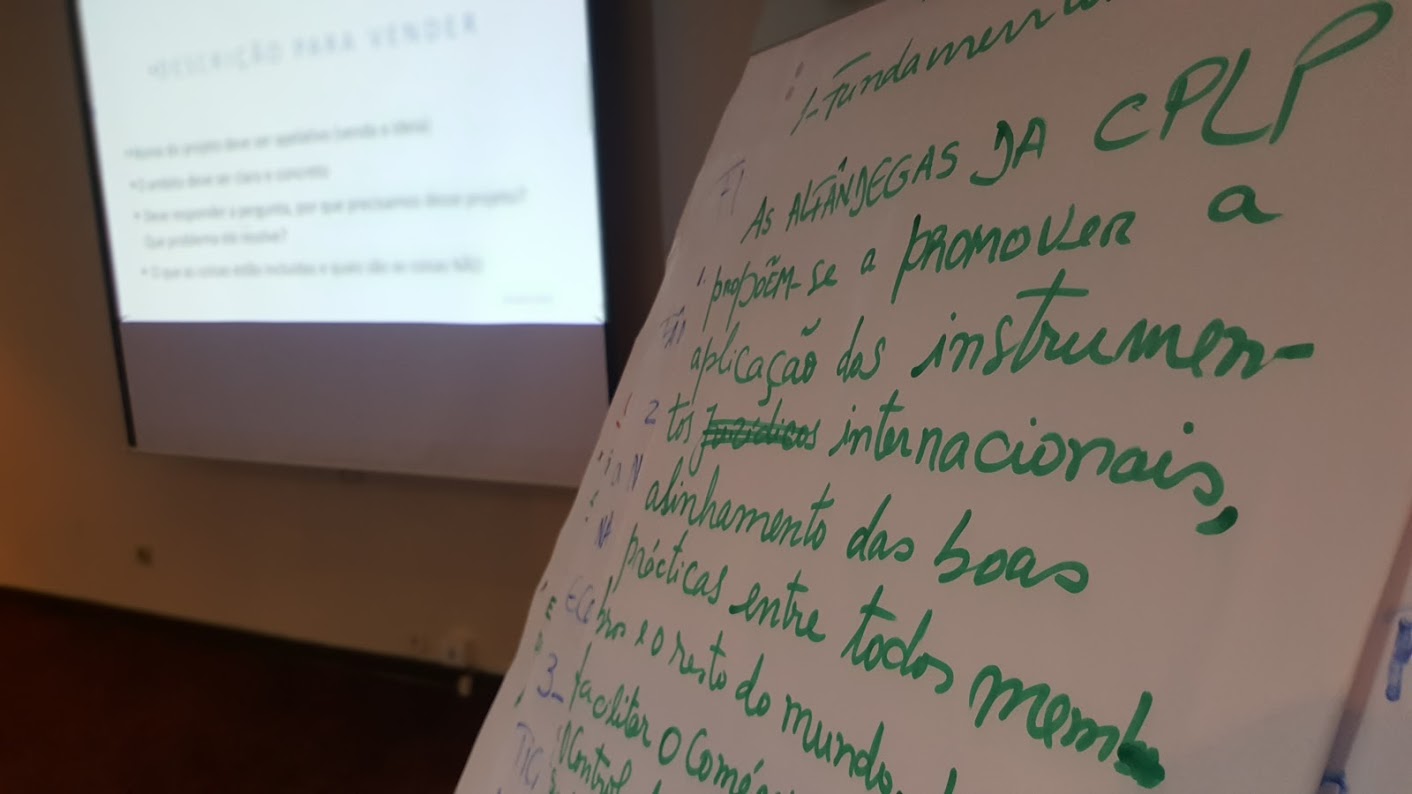 DESCRIÇÃO PARA VENDER
Nome do projeto deve ser apelativo (venda a ideia)
• O âmbito deve ser claro e concreto
• Deve responder a pergunta, por que precisamos desse projeto?
Que problema ele resolve?
• O que as coisas estão incluídas e quais são as coisas NÃO
1-Fundamen
AS ALFÂNDEGAS DA CPLP
propõem-se a promover a
aplicação dos instrumen-
tos internacionais,
alinhamento das boas
prácticas entre todos memb
bros e o resto do mundo,
facilitar o Comér
Control
2
3-